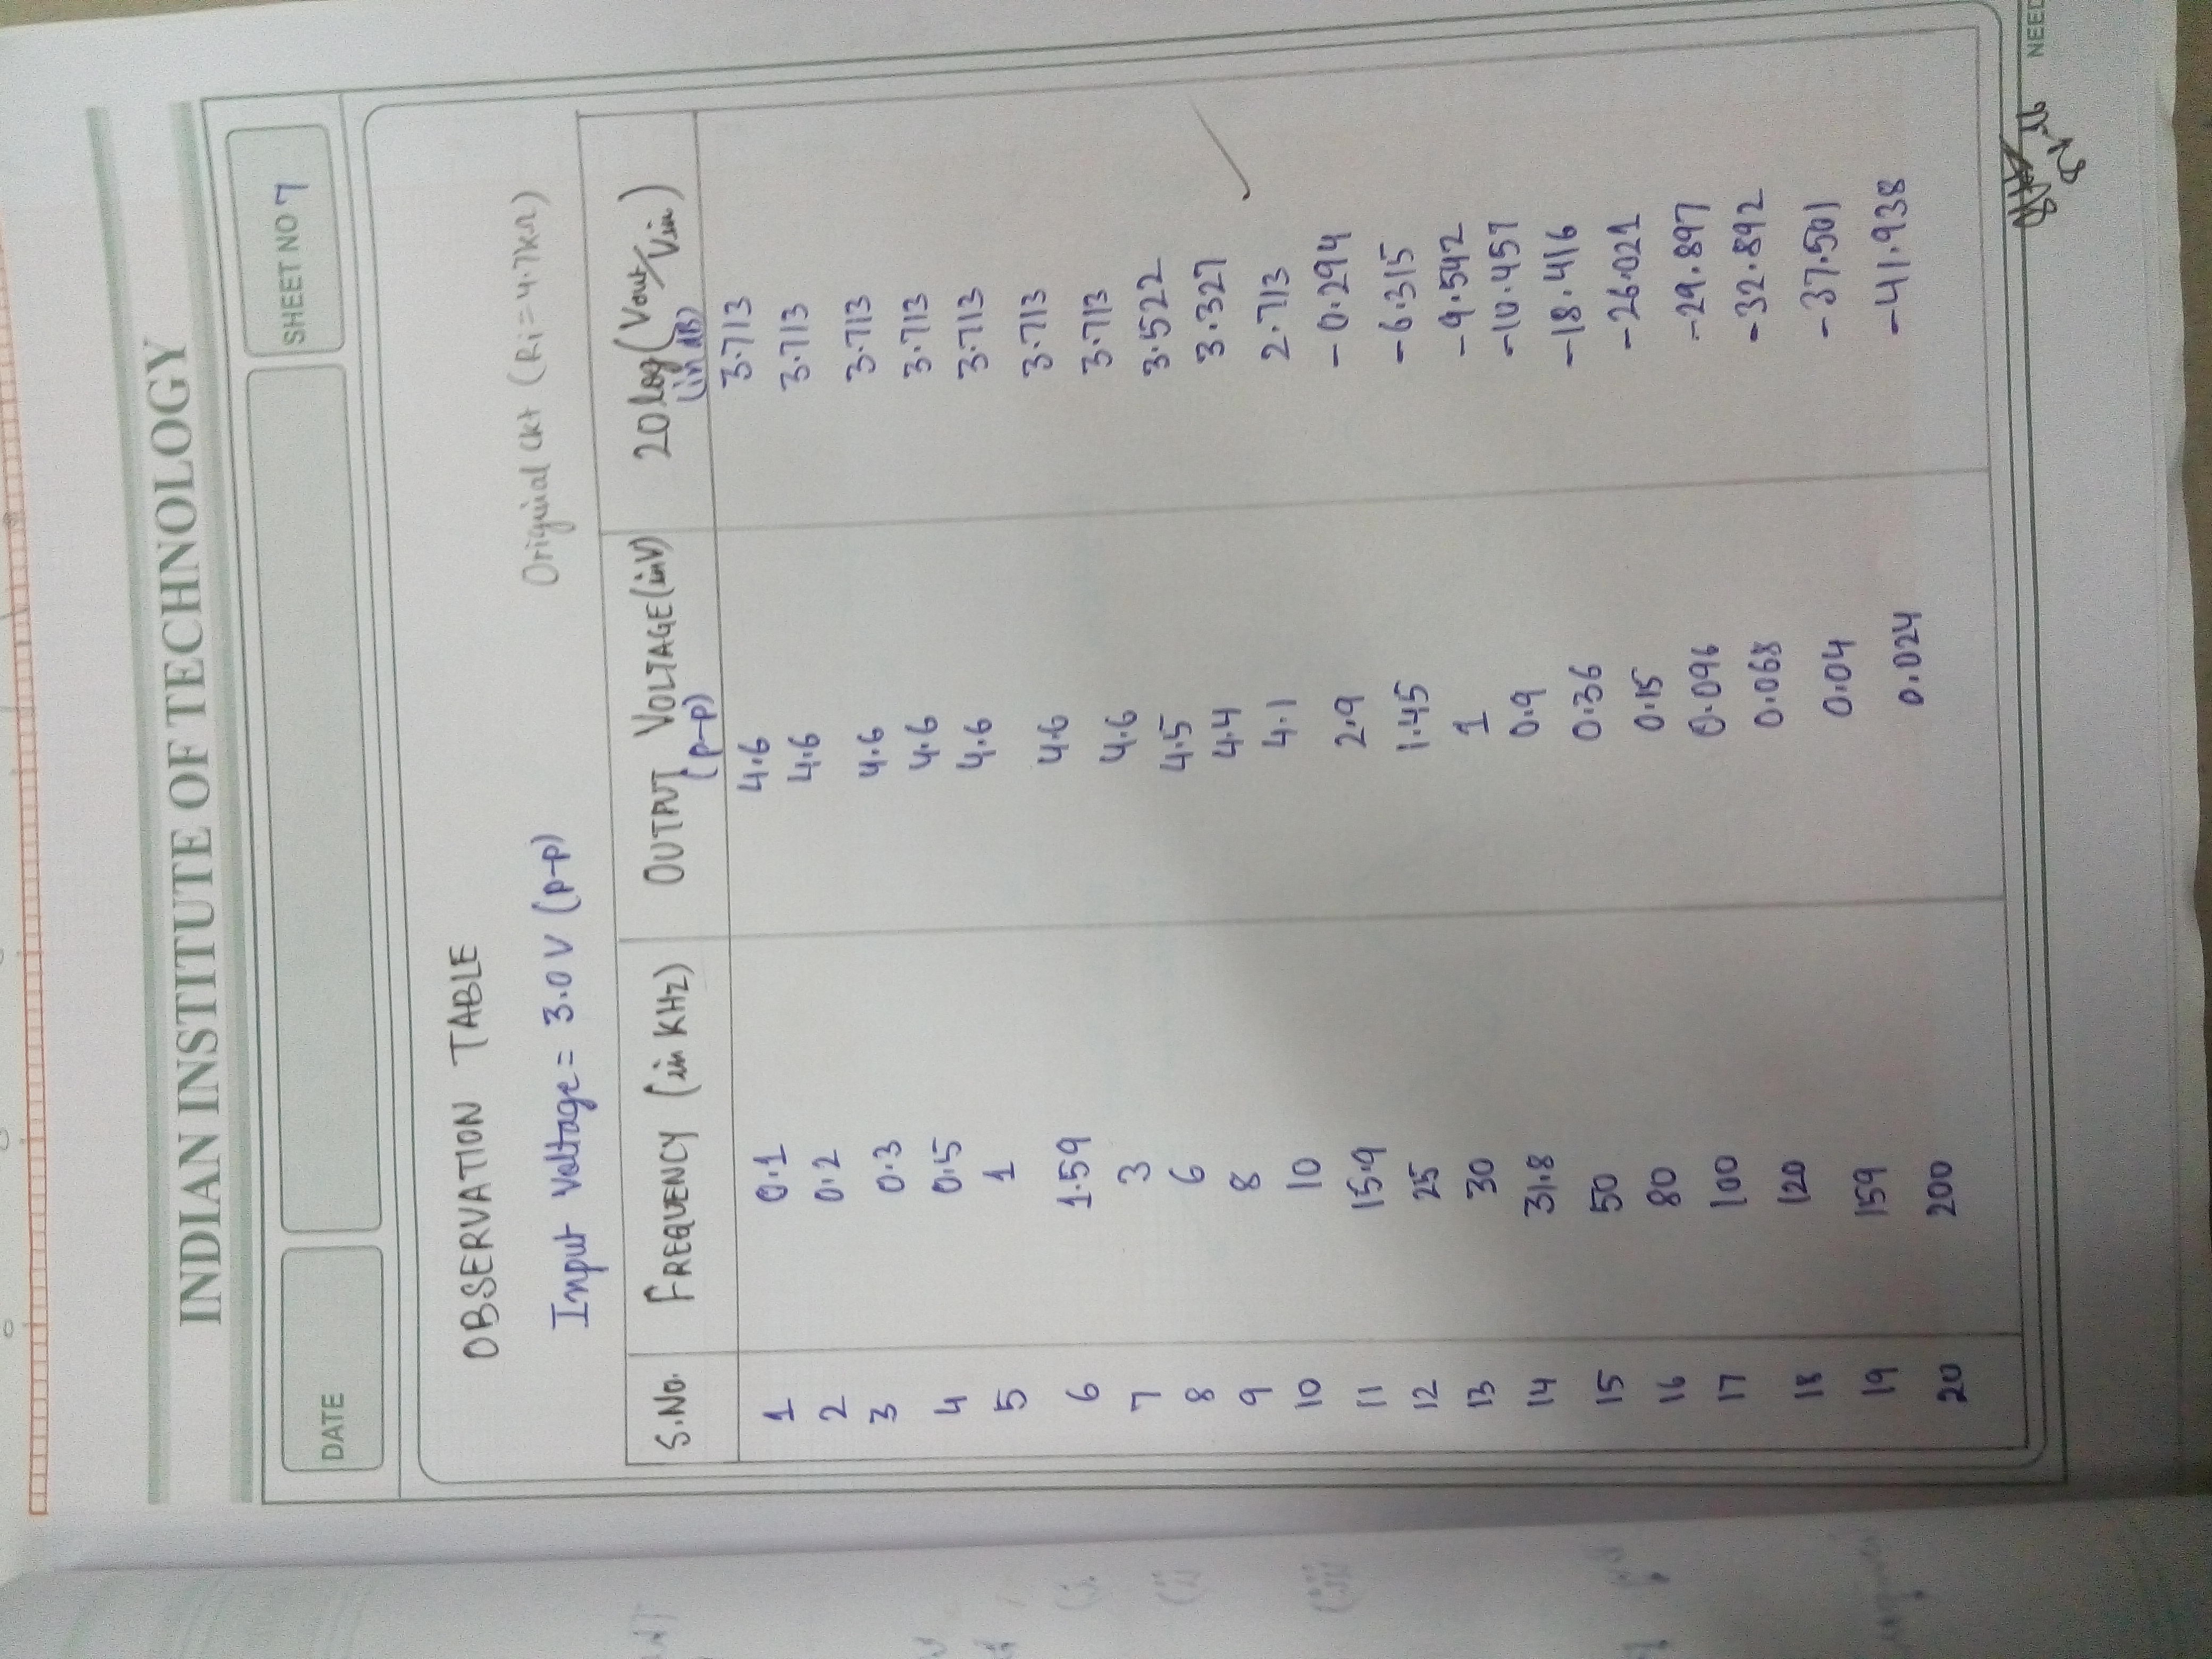 INDIAN INSTITUTE OF TECHNOLOGY
DATE
SHEET NO 7
OBSERVATION TABLE
Input Voltage = 3.0 V (p-p)
Original Ckt (Ri = 4.7kΩ)
S.No. FREQUENCY (in KHz) OUTPUT VOLTAGE (in V) (p-p) 20 log (Vout/Vin) (in dB)
1 0.1 4.6 3.713
2 0.2 4.6 3.713
3 0.3 4.6 3.713
4 0.5 4.6 3.713
5 1 4.6 3.713
6 1.59 4.6 3.713
7 3 4.6 3.713
8 6 4.5 3.522
9 8 4.4 3.327
10 10 4.1 2.713
11 15.9 2.9 -0.294
12 25 1.45 -6.315
13 30 1 -9.542
14 31.8 0.9 -10.457
15 50 0.36 -18.416
16 80 0.15 -26.021
17 100 0.096 -29.897
18 120 0.068 -32.892
19 159 0.04 -37.501
20 200 0.024 -41.938
NEED